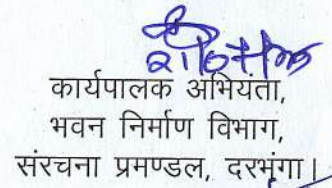 कार्यपालक अभियंता,
भवन निर्माण विभाग,
संरचना प्रमण्डल, दरभंगा।